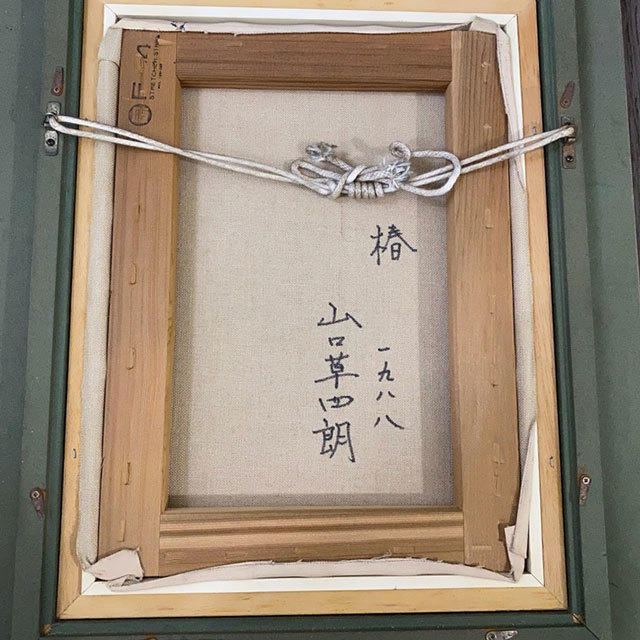 椿
一九八八
山口草四朗
STRETCHER STRIP